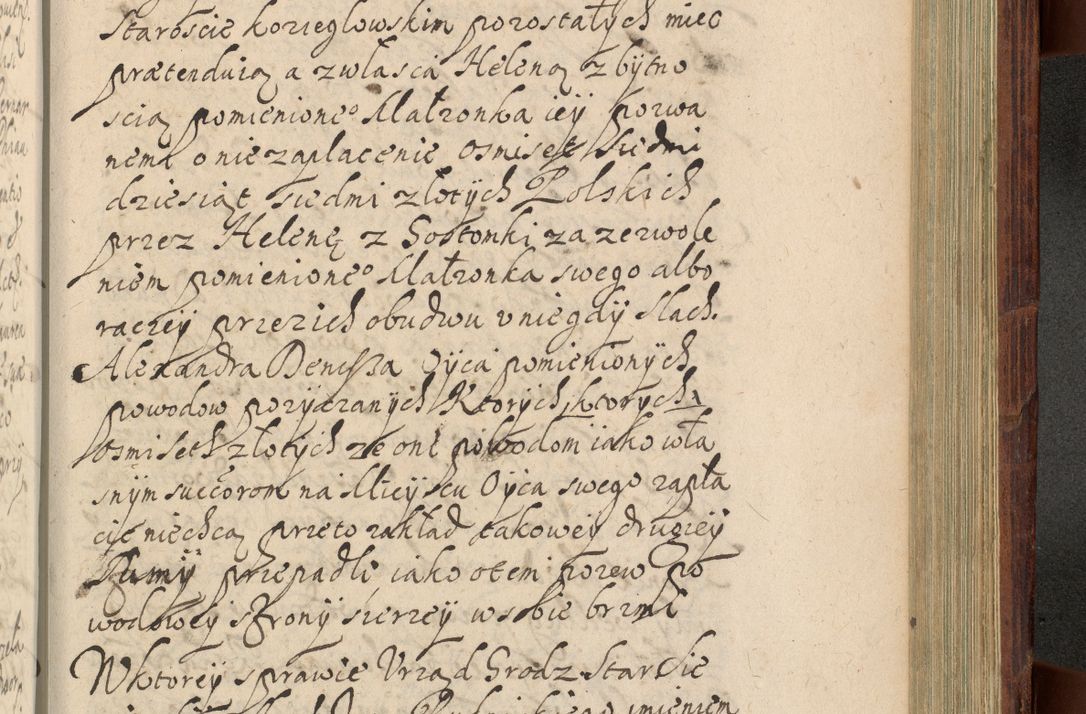 Staroscie korzeglowskim pozostałych miec
prætenduią a zwłasca Heleną z bytno
scią pomienione° Małzonka ieÿ pozwa
nemi o niezaplacenie osmiset siedmi
dziesiąt siedmi złotÿch Polskich
przez Helenę z Sostonki za zezwole
niem pomienione° Małzonka swego albo
raczeÿ przezich obudwu v niegdÿ Slach.
Alexandra Denissza Oÿca pomienionÿch
powodow pozÿczanÿch Ktorÿch, ktorÿch
osmiseth złotÿch ze oni powodom iako wła
snÿm succorom na Mieÿscu Oÿca swego zapła
cic niechcą przeto zakład takoweÿ drugieÿ
Sumÿ przepadli iako otem pozew po
wodoweÿ stronÿ szerzeÿ w sobie brzmi
W ktoreÿ sprawie Vrząd Grodz: Star: Sie
imieniem